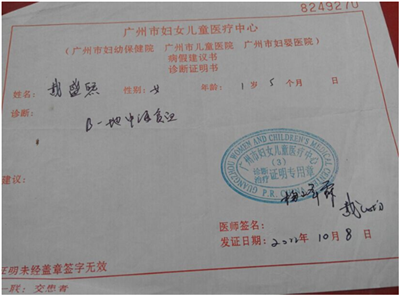 8249270
广州市妇女儿童医疗中心
(广州市妇幼保健院 广州市儿童医院 广州市妇婴医院)
病假建议书
诊断证明书
姓名: 性别: 女 年龄: 1 岁 5 个月 日
诊断:
B-地中海贫血
建议:
GUANGZHOU WOMEN AND CHILDREN'S MEDICAL CENTER
广州市妇女儿童医疗中心
(3)
诊断
治疗 证明专用章
P.R.
医师签名:
发证日期: 2012年 10月 8日
证明未经盖章签字无效
一联: 交患者